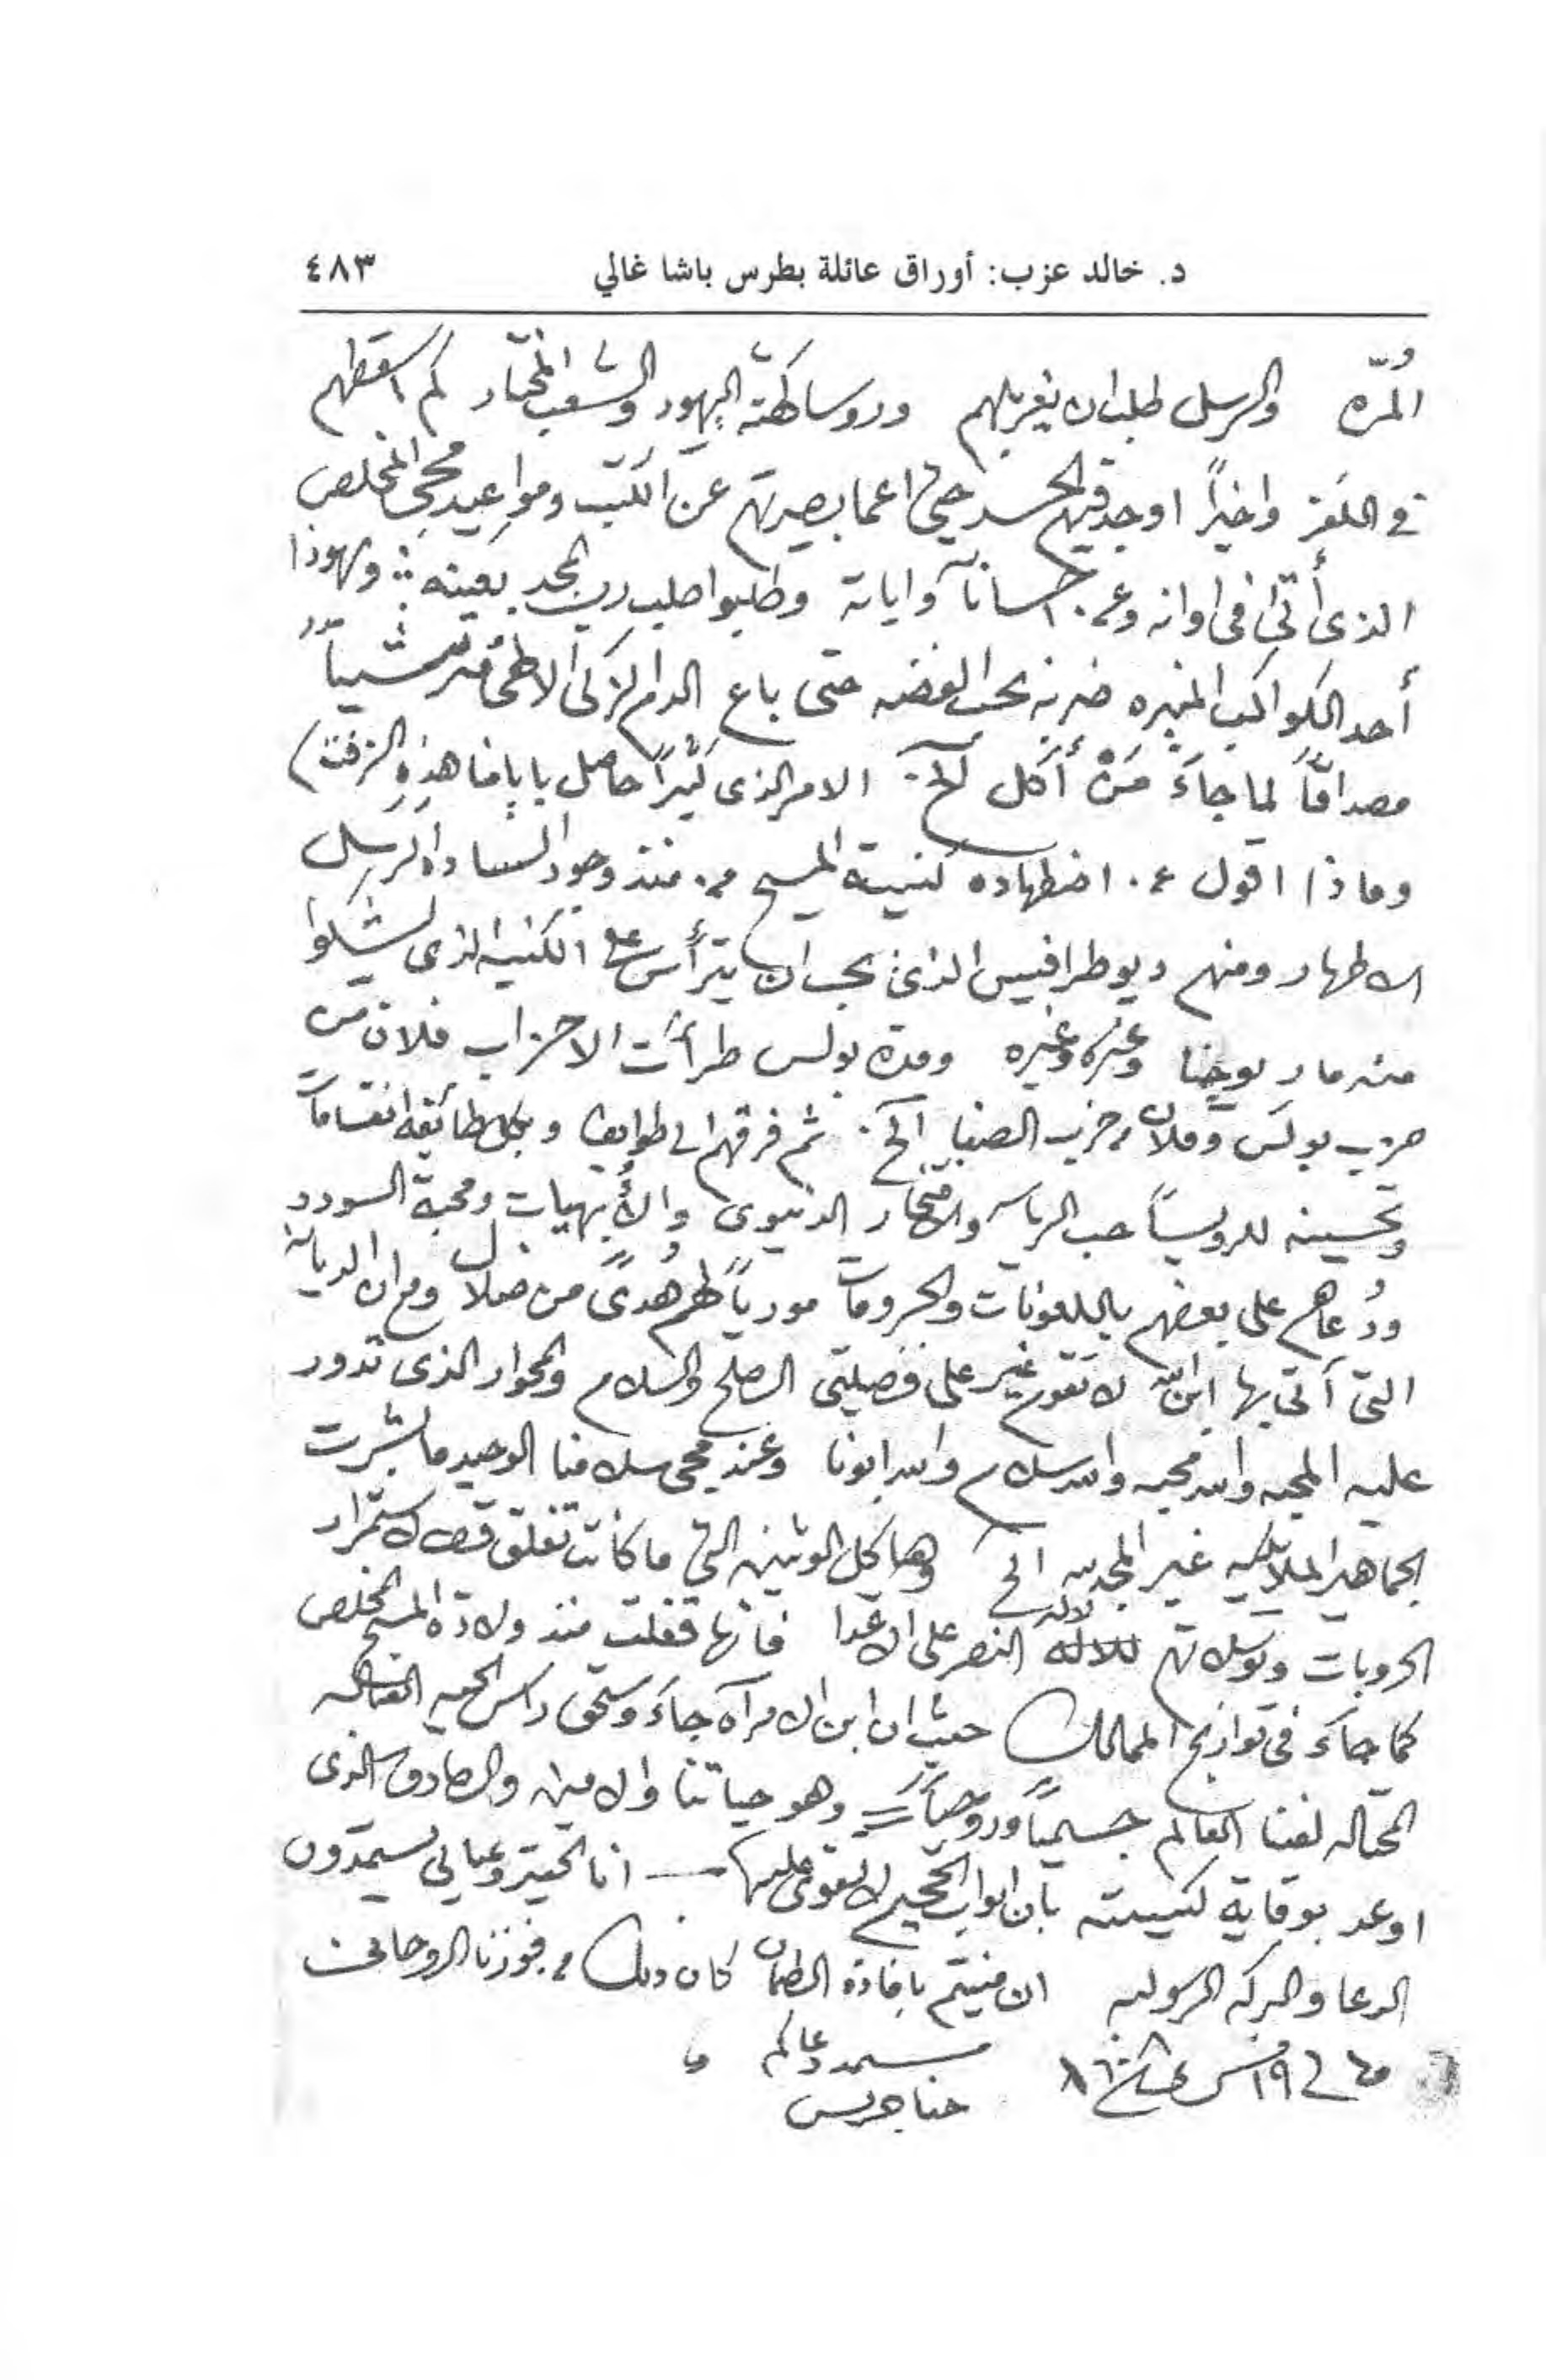 د. خالد عزب: أوراق عائلة بطرس باشا غالي ٤٨٣
المُرّه والرسل طلب ان يغربلهم وروسا كهنة اليهود والشعب المختار كم اسقطهم
في اللغز واخيراً اوجد فيهم الحسد حتى اعما بصيرتهم عن الكتب ومواعيد مجي المخلص
الذى أتى فى اوانه وعن احساناته واياته وطلبوا صلب رب المجد بعينه ويهوذا
أحد الكواكب المنيره ضربه بحب الفضه حتى باع الدم الزكى
مصداقاً لما جاءَ مَنْ أكل الخ الامر الذى كثيراً حاصل بايامنا هذه
وماذا اقول عن اضطهاده كنيسة المسيح من منذ وجود السادة الرسل
الاطهار ومنهم ديوطرافيس الذى يحب ان يترأس على الكنيسه الذى
منه مار يوحنا وغيره وغيره ومدة بولس طرأت الاحزاب فلان من
حزب بولس وفلان من حزب الصفا الخ ثم فرقهم الى طوايف وبكل طائفه انقسامات
وتحسينه للروسا حب الرياسه والافتخار الدنيوى والأبهيات ومحبة السودد
على بعضهم باللعونات والحرومات مورياً لهم هُدىً من ضلال ومع ان الديانه
التى آتى بها ابن الله لا تقوم غير على فضيلتى الصلح والسلام والمحوار الذى تدور
عليه المحبه والله محبه والله سلام والله ابونا وعند مجى سلامنا الوحيد ما بشرت
الجماهير الملائكيه غير المجد لله الخ وهياكل الوثنين التى ما كانت تغلق قط لاستمرار
الحروبات وتوسلاتهم لالهه النصر على الاعدا فانها قفلت منذ ولادة المسيح المخلص
كما جاءَ فى تواريخ الممالك حيث ان ابن الامرآه جاءَ وسحق راس الحيه
لفينا العالم جسمياً وروحياً وهو حياتنا والامين والصادق الذى
اوعد بوقاية كنيسته بان ابواب الجحيم لا تقوى عليها — انا الحقير وعيالى نستمدون
الدعا والبركه الرسوليه ان منيتم بافادة كان ذلك من فوزنا الروحانى
١٩ مستمد دعاكم
حنا جريس